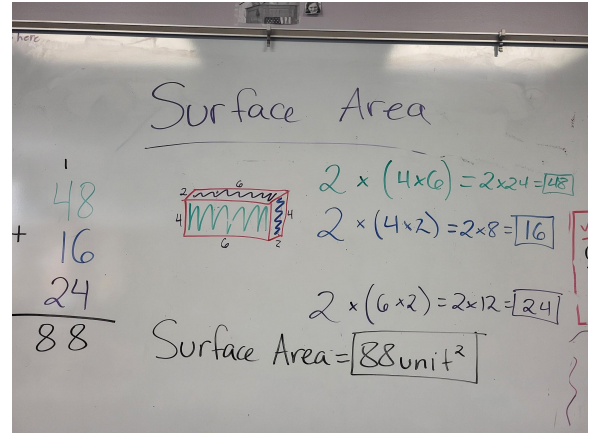 here
Surface Area
1
48
+ 16
24
88
6
2
4
4
6
2
2 × (4×6) = 2×24 = 48
2 × (4×2) = 2×8 = 16
2 × (6×2) = 2×12 = 24
Surface Area = 88 unit²